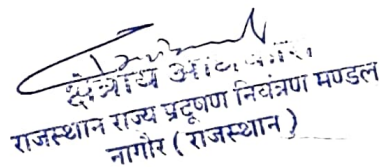 क्षेत्रीय अधिकारी
राजस्थान राज्य प्रदूषण नियंत्रण मण्डल
नागौर ( राजस्थान )